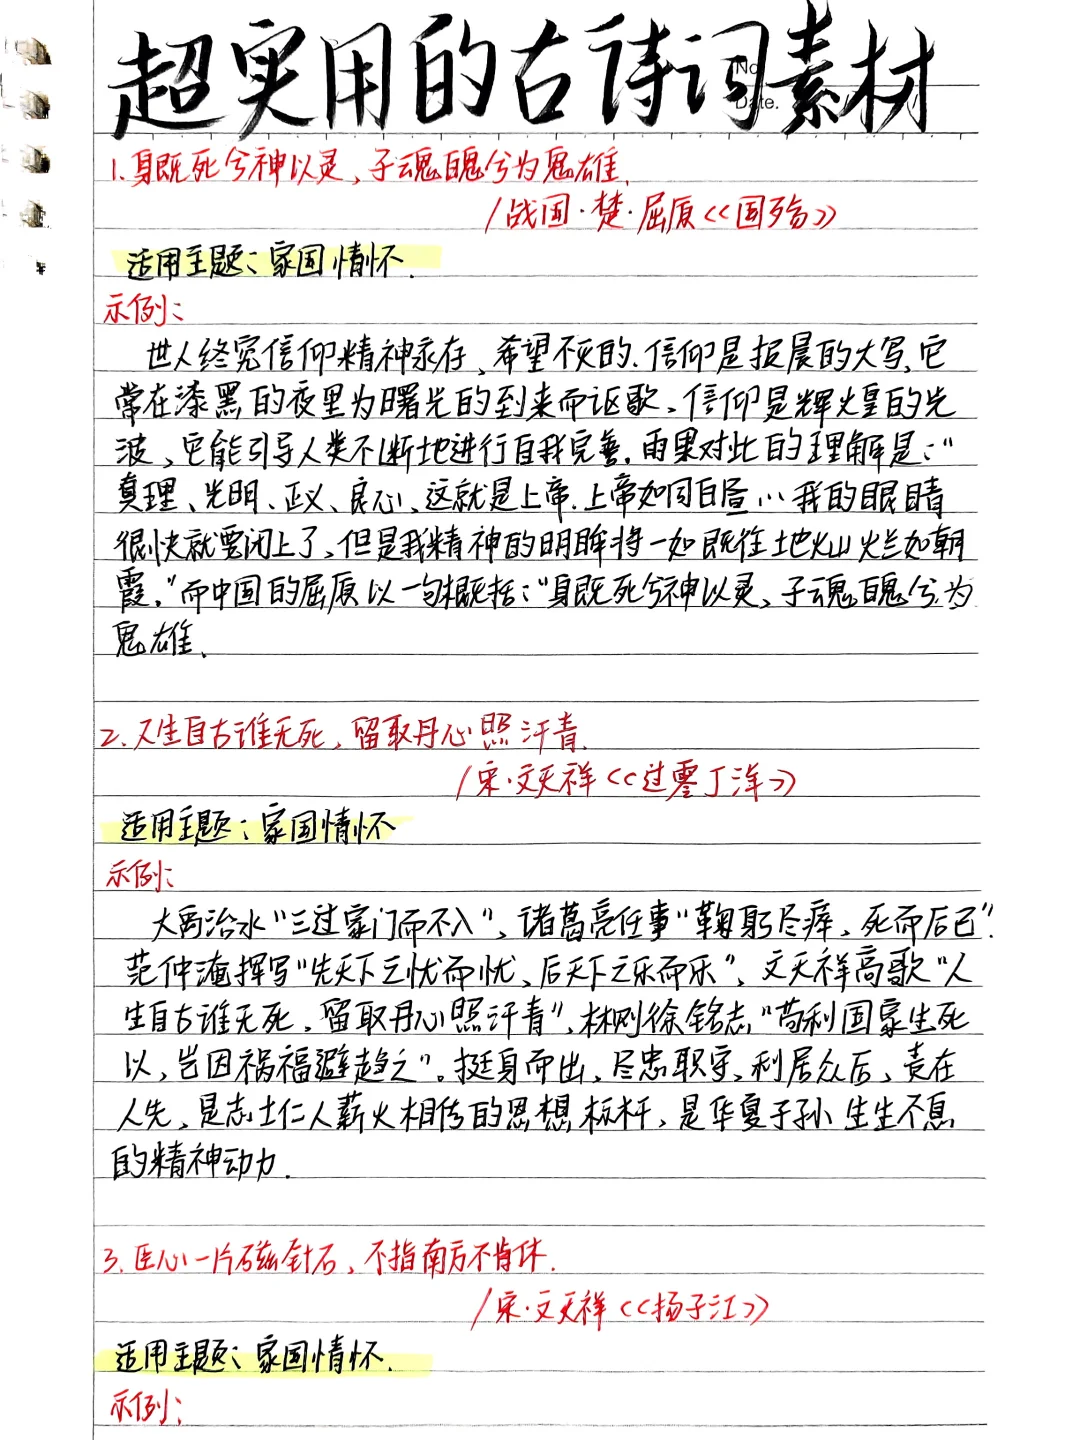 超实用的古诗词素材
No.
Date.
1.身既死兮神以灵,子魂魄兮为鬼雄.
/战国·楚·屈原《国殇》
适用主题:家国情怀.
示例:
世人终究信仰精神永存、希望不灭的.信仰是报晨的大写,它
常在漆黑的夜里为曙光的到来而讴歌、信仰是辉煌的光
波、它能引导人类不断地进行自我完善.雨果对此的理解是:“
真理、光明、正义、良心、这就是上帝.上帝如同白昼…我的眼睛
很快就要闭上了,但是我精神的明眸将一如既往地灿烂如朝
霞。”而中国的屈原以一句概括:“身既死兮神以灵、子魂魄兮为
鬼雄、
2.人生自古谁无死,留取丹心照汗青.
/宋·文天祥《过零丁洋》
适用主题:家国情怀
示例:
大禹治水“三过家门而不入”,诸葛亮任事“鞠躬尽瘁,死而后已”.
范仲淹挥写“先天下之忧而忧,后天下之乐而乐”,文天祥高歌“人
生自古谁无死,留取丹心照汗青”,林则徐铭志“苟利国家生死
以,岂因祸福避趋之”。挺身而出、尽忠职守、利居众后,责在
人先,是志士仁人薪火相传的思想标杆,是华夏子孙生生不息
的精神动力.
3.臣心一片磁针石,不指南方不肯休.
/宋·文天祥《扬子江》
适用主题:家国情怀.
示例: